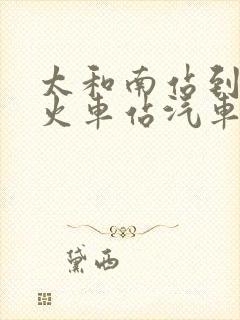 太和南站到
火车站汽车
黛西